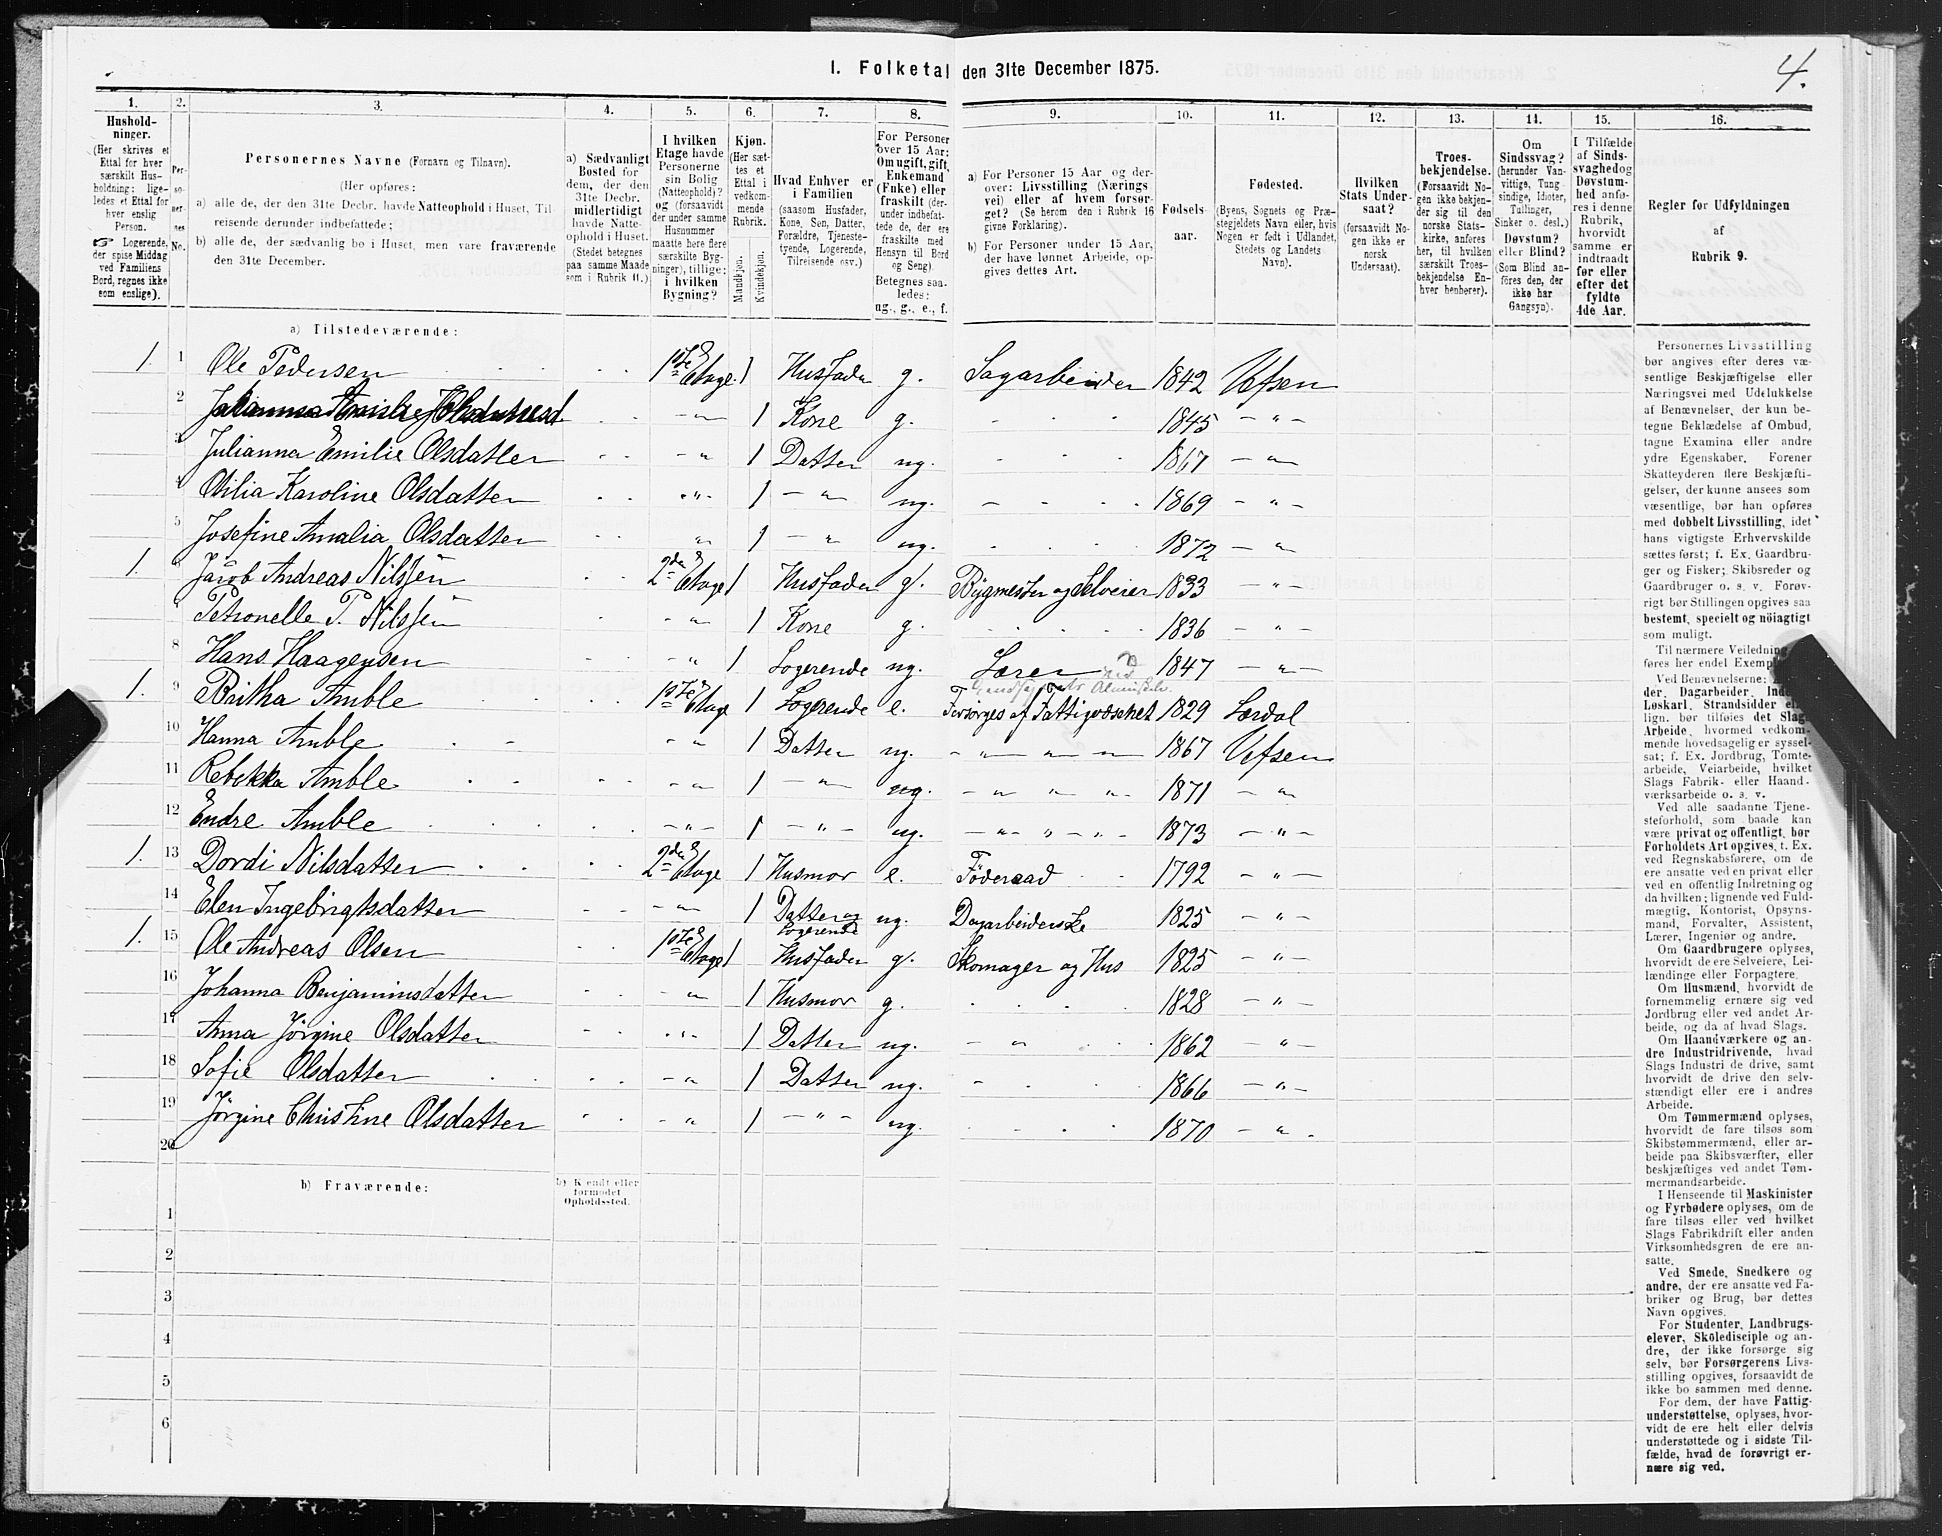 4.
1. Folketal den 31te December 1875.
1. 2. 3. 4. 5. 6. 7. 8. 9. 10. 11. 12. 13. 14. 15. 16.
Hushold-
ninger.
(Her skrives et
Ettal for hver
særskilt Hus-
holdning; lige-
ledes et Ettal for
hver enslig
Person.
☞ Logerende,
der spise Middag
ved Familiens
Bord, regnes ikke
som enslige).
Per-
so-
ner-
nes
No.
Personernes Navne (Fornavn og Tilnavn).
(Her opføres:
a) alle de, der den 31te Decbr. havde Natteophold i Huset, Til-
reisende derunder indbefattede;
b) alle de, der sædvanlig bo i Huset, men vare fraværende
den 31te December.
a) Sædvanligt
Bosted for
dem, der den
31te Decbr.
midlertidigt
havde Natte-
ophold i Huset.
(Stedet betegnes
paa samme Maade
som i Rubrik 11.)
I hvilken
Etage havde
Personerne
sin Bolig
(Natteophold)?
og (forsaavidt
der under samme
Husnummer
maatte høre flere
særskilte Byg-
ninger), tillige:
i hvilken
Bygning?
Kjøn.
(Her sæt-
tes et
Ettal i
vedkom-
mende
Rubrik.
Mandkjøn.
Kvindekjøn.
Hvad Enhver er
i Familien
(saasom Husfader,
Kone, Søn, Datter,
Forældre, Tjeneste-
tyende, Logerende,
Tilreisende osv.)
For Personer
over 15 Aar:
Om ugift, gift,
Enkemand
(Enke) eller
fraskilt (der-
under indbefat-
tede de, der ere
fraskilte med
Hensyn til Bord
og Seng).
Betegnes saa-
ledes:
ug., g., e., f.
a) For Personer 15 Aar og der-
over: Livsstilling (Nærings
vei) eller af hvem forsør-
get? (Se herom den i Rubrik 16
givne Forklaring).
b) For Personer under 15 Aar,
der have lønnet Arbeide, op-
gives dettes Art.
Fødsels-
aar.
Fødested.
(Byens, Sognets og Præ-
stegjeldets Navn eller, hvis
Nogen er født i Udlandet,
Stedets og Landets
Navn).
Hvilken
Stats Under-
saat?
(forsaavidt No-
gen ikke er
norsk
Undersaat).
Troes-
bekjendelse.
(Forsaavidt No-
gen ikke bekjen-
der sig til den
norske Stats-
kirke, anføres
her, til hvilken
særskilt Troes-
bekjendelse En-
hver henhører).
Om
Sindssvag?
(herunder Van-
vittige, Tung-
sindige, Idioter,
Tullinger,
Sinker o. desl.)
Døvstum?
eller Blind?
(Som Blind an-
føres den, der
ikke har
Gangsyn).
I Tilfælde
af Sinds-
svaghed og
Døvstum-
hed anfø-
res i denne
Rubrik,
hvorvidt
samme er
indtraadt
før eller
efter det
fyldte
4de Aar.
Regler for Udfyldningen
af
Rubrik 9.
a) Tilstedeværende:
1. 1 Ole Pedersen 1ste Etage 1 Husfader g. Sagarbeider 1842 Vefsen
2 - " - 1 Kone g. 1845 - " -
3 Julianna Emilie Olsdatter - " 1 Datter ug. 1867 - "
4 Otilia Karoline Olsdatter - " - 1 - " ug. 1869 - " -
5 Josefine Amalia Olsdatter " 1 - " ug. 1872 - "
1. 6 Jacob Andreas Nilssen 2den Etage 1 Husfader g. Bygmester og Selveier 1833 - " -
7 Petronelle P. Nilssen - " 1 Kone g. 1836 - " -
8 Hans Haagensen - " 1 Logerende ug. Lærer 1847 - " -
1. 9 Britha Amble 1ste Etage 1 Logerende e. Forsørges af Fattigvæsenet 1829 Lærdal
10 Hanna Amble - " 1 Datter ug. - " " " 1867 Vefsen
11 Rebekka Amble - " 1 - " ug. - " " " - 1871 - "
12 Endre Amble - " - 1 - " - ug. - " - " - " - 1873 - " -
1. 13 Dordi Nilsdatter 2den Etage 1 Husmor e. Føderaad 1792 - " -
14 Elen Ingebrigtsdatter - " 1 Datter og Logerende ug. Dagarbeiderske 1825 - " -
1. 15 Ole Andreas Olsen 1ste Etage 1 Husfader g. Skomager og Hus 1825 - " -
16 Johanna Benjaminsdatter - " 1 Husmor g. 1828 - " -
17 Anna Jørgine Olsdatter " 1 Datter ug. - " 1862 - " -
18 Sofie Olsdatter - " 1 Datter ug. 1866 - " -
19 Jørgine Christine Olsdatter - " 1 - " - ug. 1870 - " -
20
b) Fraværende:
b) Kjendt eller
formodet
Opholdssted.
1
2
3
4
5
6
Personernes Livsstilling
bør angives efter deres væ-
sentlige Beskjæftigelse eller
Næringsvei med Udelukkelse
af Benævnelser, der kun be-
tegne Beklædelse af Ombud,
tagne Examina eller andre
ydre Egenskaber. Forener
Skatteyderen flere Beskjæfti-
gelser, der kunne ansees som
væsentlige, bør han opføres
med dobbelt Livsstilling, idet
hans vigtigste Erhvervskilde
sættes først; f. Ex. Gaardbru-
ger og Fisker; Skibsreder og
Gaardbruger o. s. v. Forøv-
rigt bør Stillingen opgives saa
bestemt, specielt og nøiagtigt
som muligt.
Til nærmere Veiledning
føres her endel Exempler:
Ved Benævnelserne:
der, Dagarbeider, Inder
Løskarl, Strandsidder eller
lign. bør tilføies det Slags
Arbeide, hvormed vedkom-
mende hovedsagelig er syssel-
sat; f. Ex. Jordbrug, Tomte-
arbeide, Veiarbeide, hvilket
Slags Fabrik- eller Haand-
værksarbeide o. s. v.
Ved alle saadanne Tjene-
steforhold, som baade kan
være privat og offentligt, bør
Forholdets Art opgives, t. Ex.
ved Regnskabsførere, om de
ere ansatte ved en privat eller
ved en offentlig Indretning og
da hvilken; lignende ved Fuld-
mægtig, Kontorist, Opsyns-
mand, Forvalter, Assistent,
Lærer, Ingeniør og andre.
Om Gaardbrugere oplyses,
hvorvidt de ere Selveiere, Lei-
lændinge eller Forpagtere.
Om Husmænd, hvorvidt de
fornemmelig ernære sig ved
Jordbrug eller ved andet Ar-
beide, og da af hvad Slags.
Om Haandværkere og an-
dre Industridrivende, hvad
Slags Industri de drive, samt
hvorvidt de drive den selv-
stændigt eller ere i andres
Arbeide.
Om Tømmermænd oplyses,
hvorvidt de fare tilsøs som
Skibstømmermænd, eller ar-
beide paa Skibsværfter, eller
beskjæftiges ved andet Tøm-
mermandsarbeide.
I Henseende til Maskinister
og Fyrbødere oplyses, om de
fare tilsøs eller ved hvilket
Slags Fabrikdrift eller anden
Virksomhedsgren de ere an-
satte.
Ved Smede, Snedkere og
andre, der ere ansatte ved Fa-
briker og Brug, bør dettes
Navn opgives.
For Studenter, Landbrugs-
elever, Skoledisciple og an-
dre, der ikke forsørge sig
selv, bør Forsørgerens Livs-
stilling opgives, forsaavidt de
ikke bo sammen med denne.
For dem, der have Fattig-
understøttelse, oplyses, hvor-
vidt de ere helt eller delvis
understøttede og i sidste Til-
fælde, hvad de forøvrigt er-
nære sig ved.